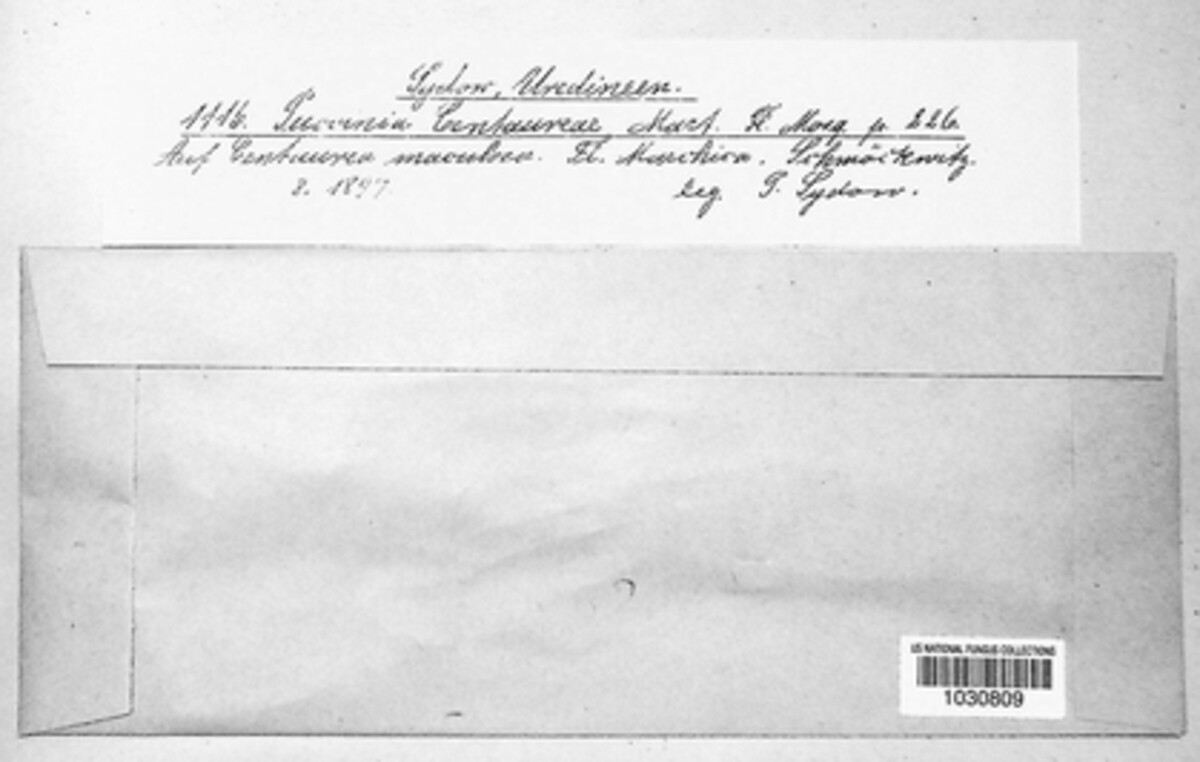 Sydow, Uredineen.
1116. Puccinia Centaureae Mart. Fl. Mosq p. 226.
Auf Centaurea maculosa. Fl. Marchica. Schmöckwitz.
8. 1897 leg. P. Sydow.
US NATIONAL FUNGUS COLLECTIONS
1030809